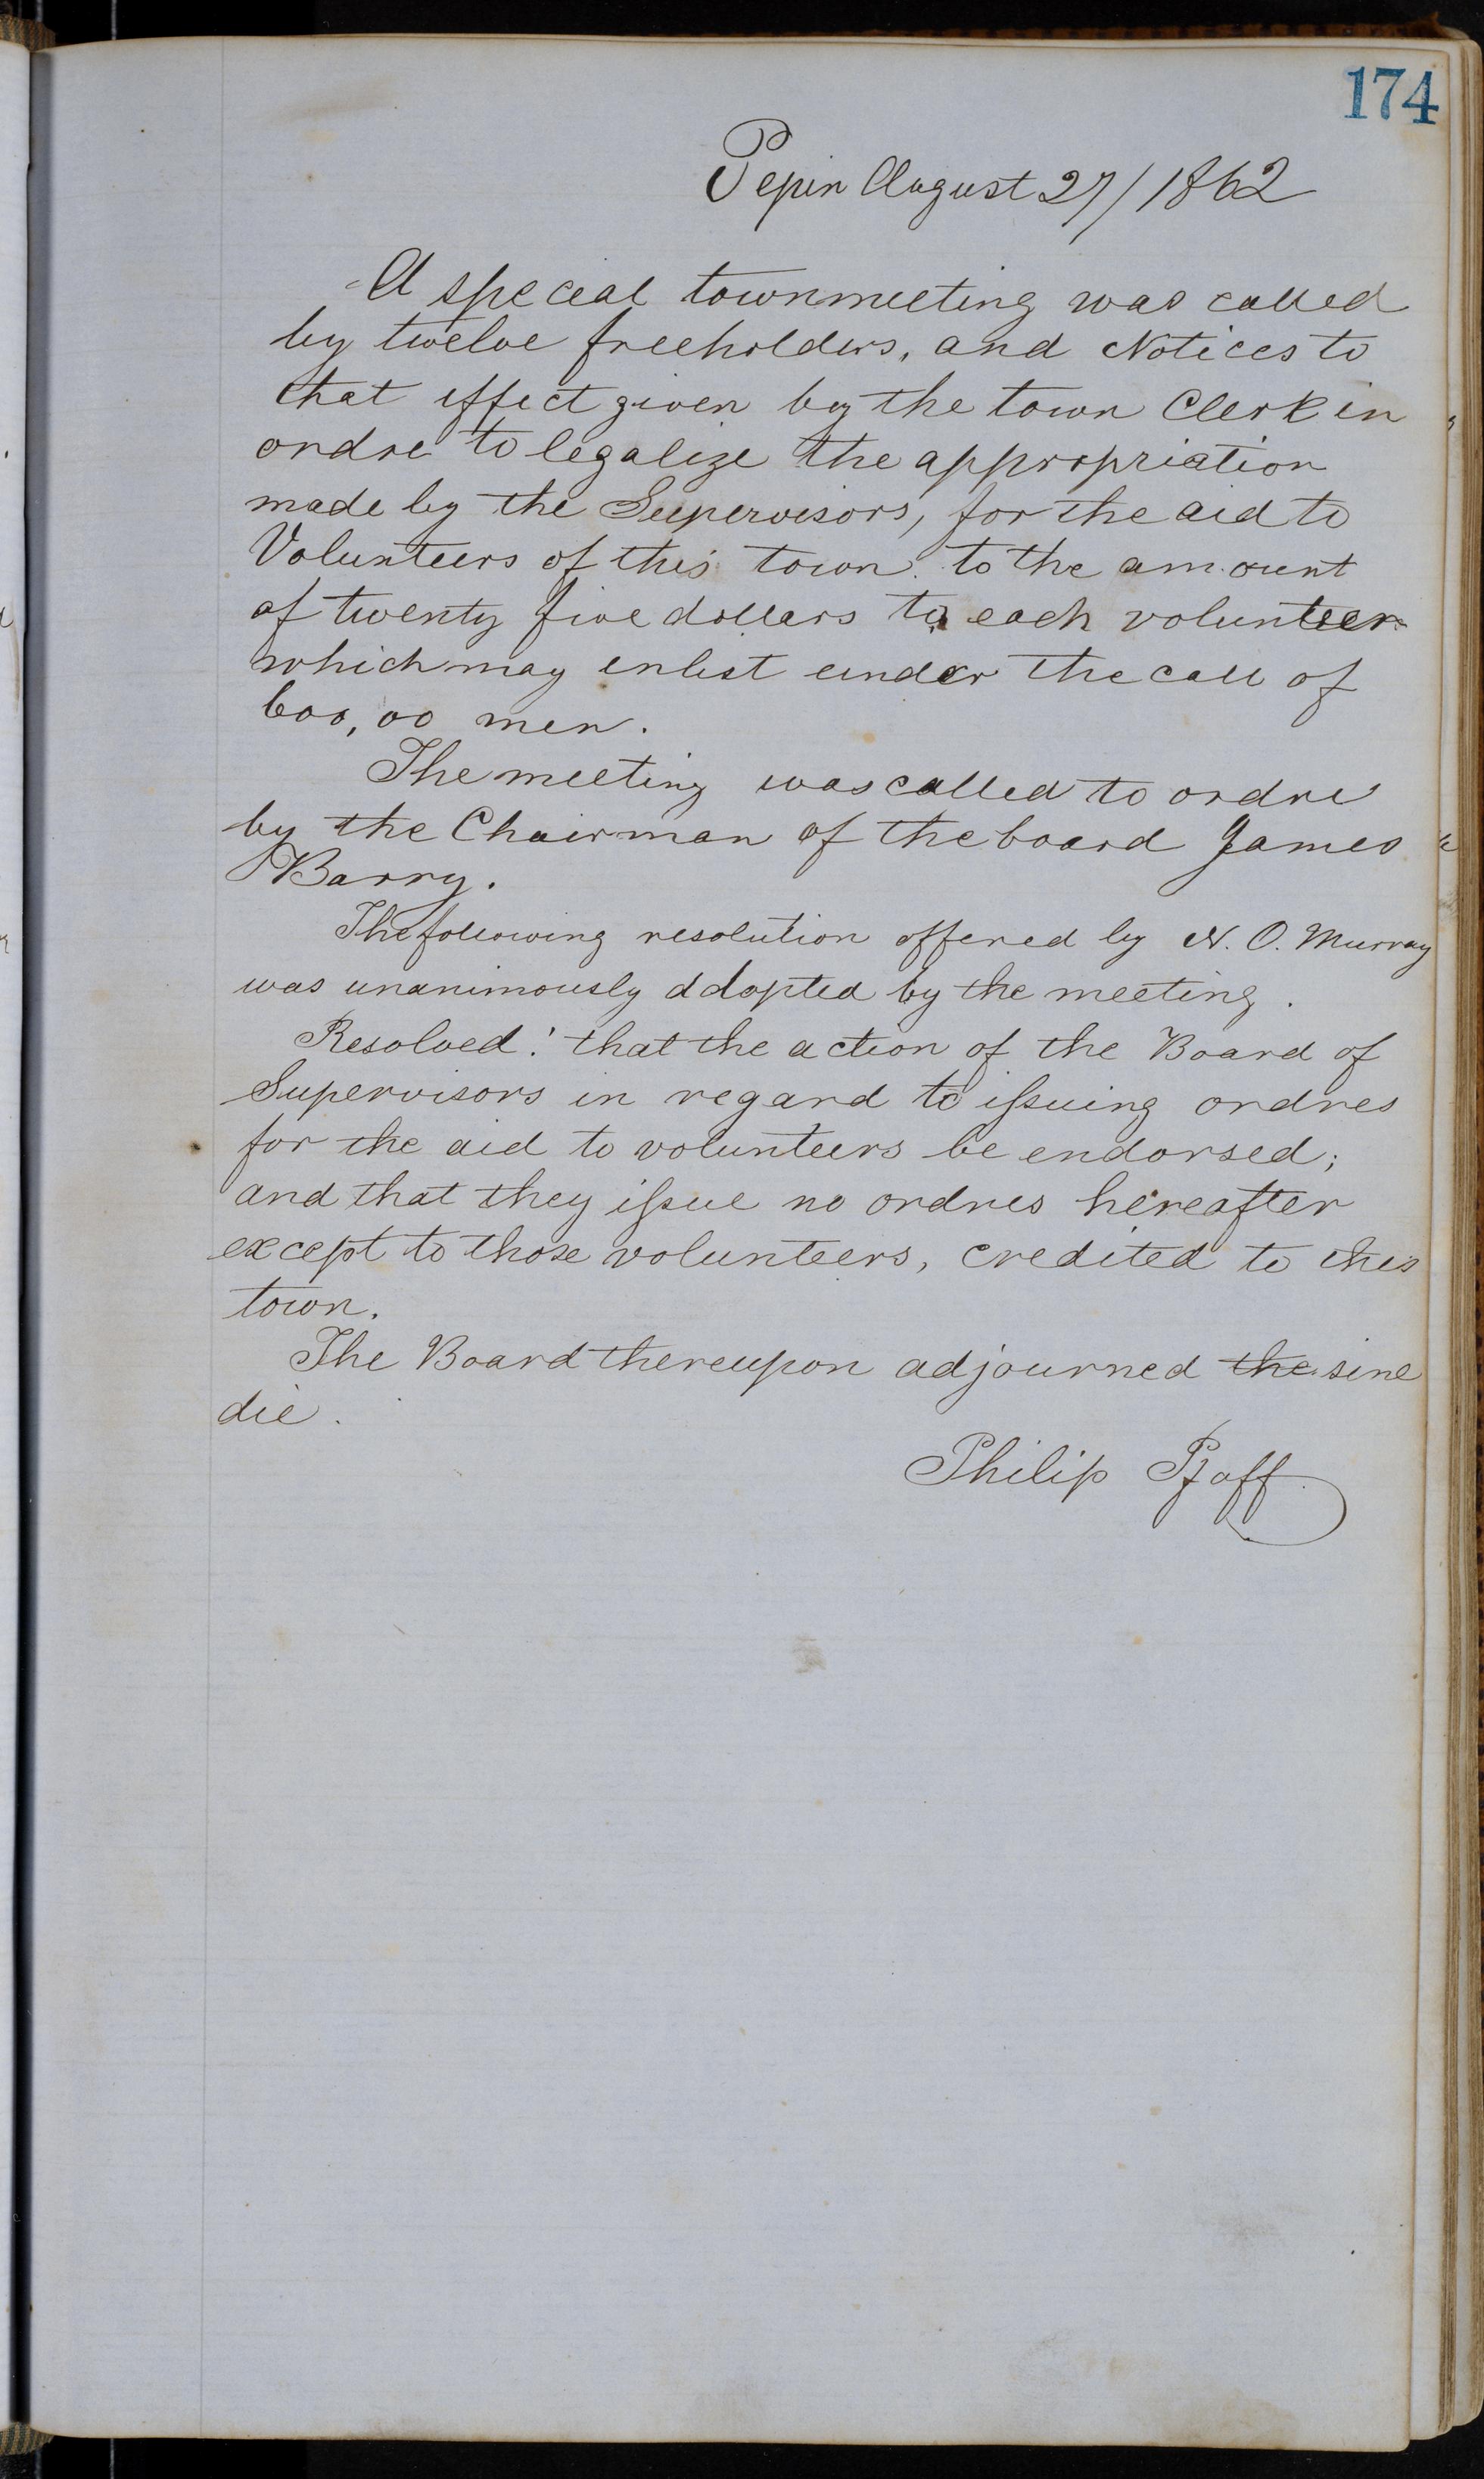 174
Pepin August 27/1862
A special townmeeting was called
by twelve freeholders, and Notices to
that effect given by the town Clerk in
ordre to legalize the appropriation
made by the Supervisors, for the aid to
Volunteers of this town. to the amount
of twenty five dollars to each volunteer
which may enlist under the call of
600,00 men.
The meeting was called to ordre
by the Chairman of the board James
Barry.
The following resolution offered by N. O. Murray
was unanimously addopted by the meeting.
Resolved: that the action of the Board of
Supervisors in regard to issuing ordres
for the aid to volunteers be endorsed;
and that they issue no ordres hereafter
except to those volunteers, credited to this
town.
The Board thereupon adjourned the sine
die.
Philip Pfaff